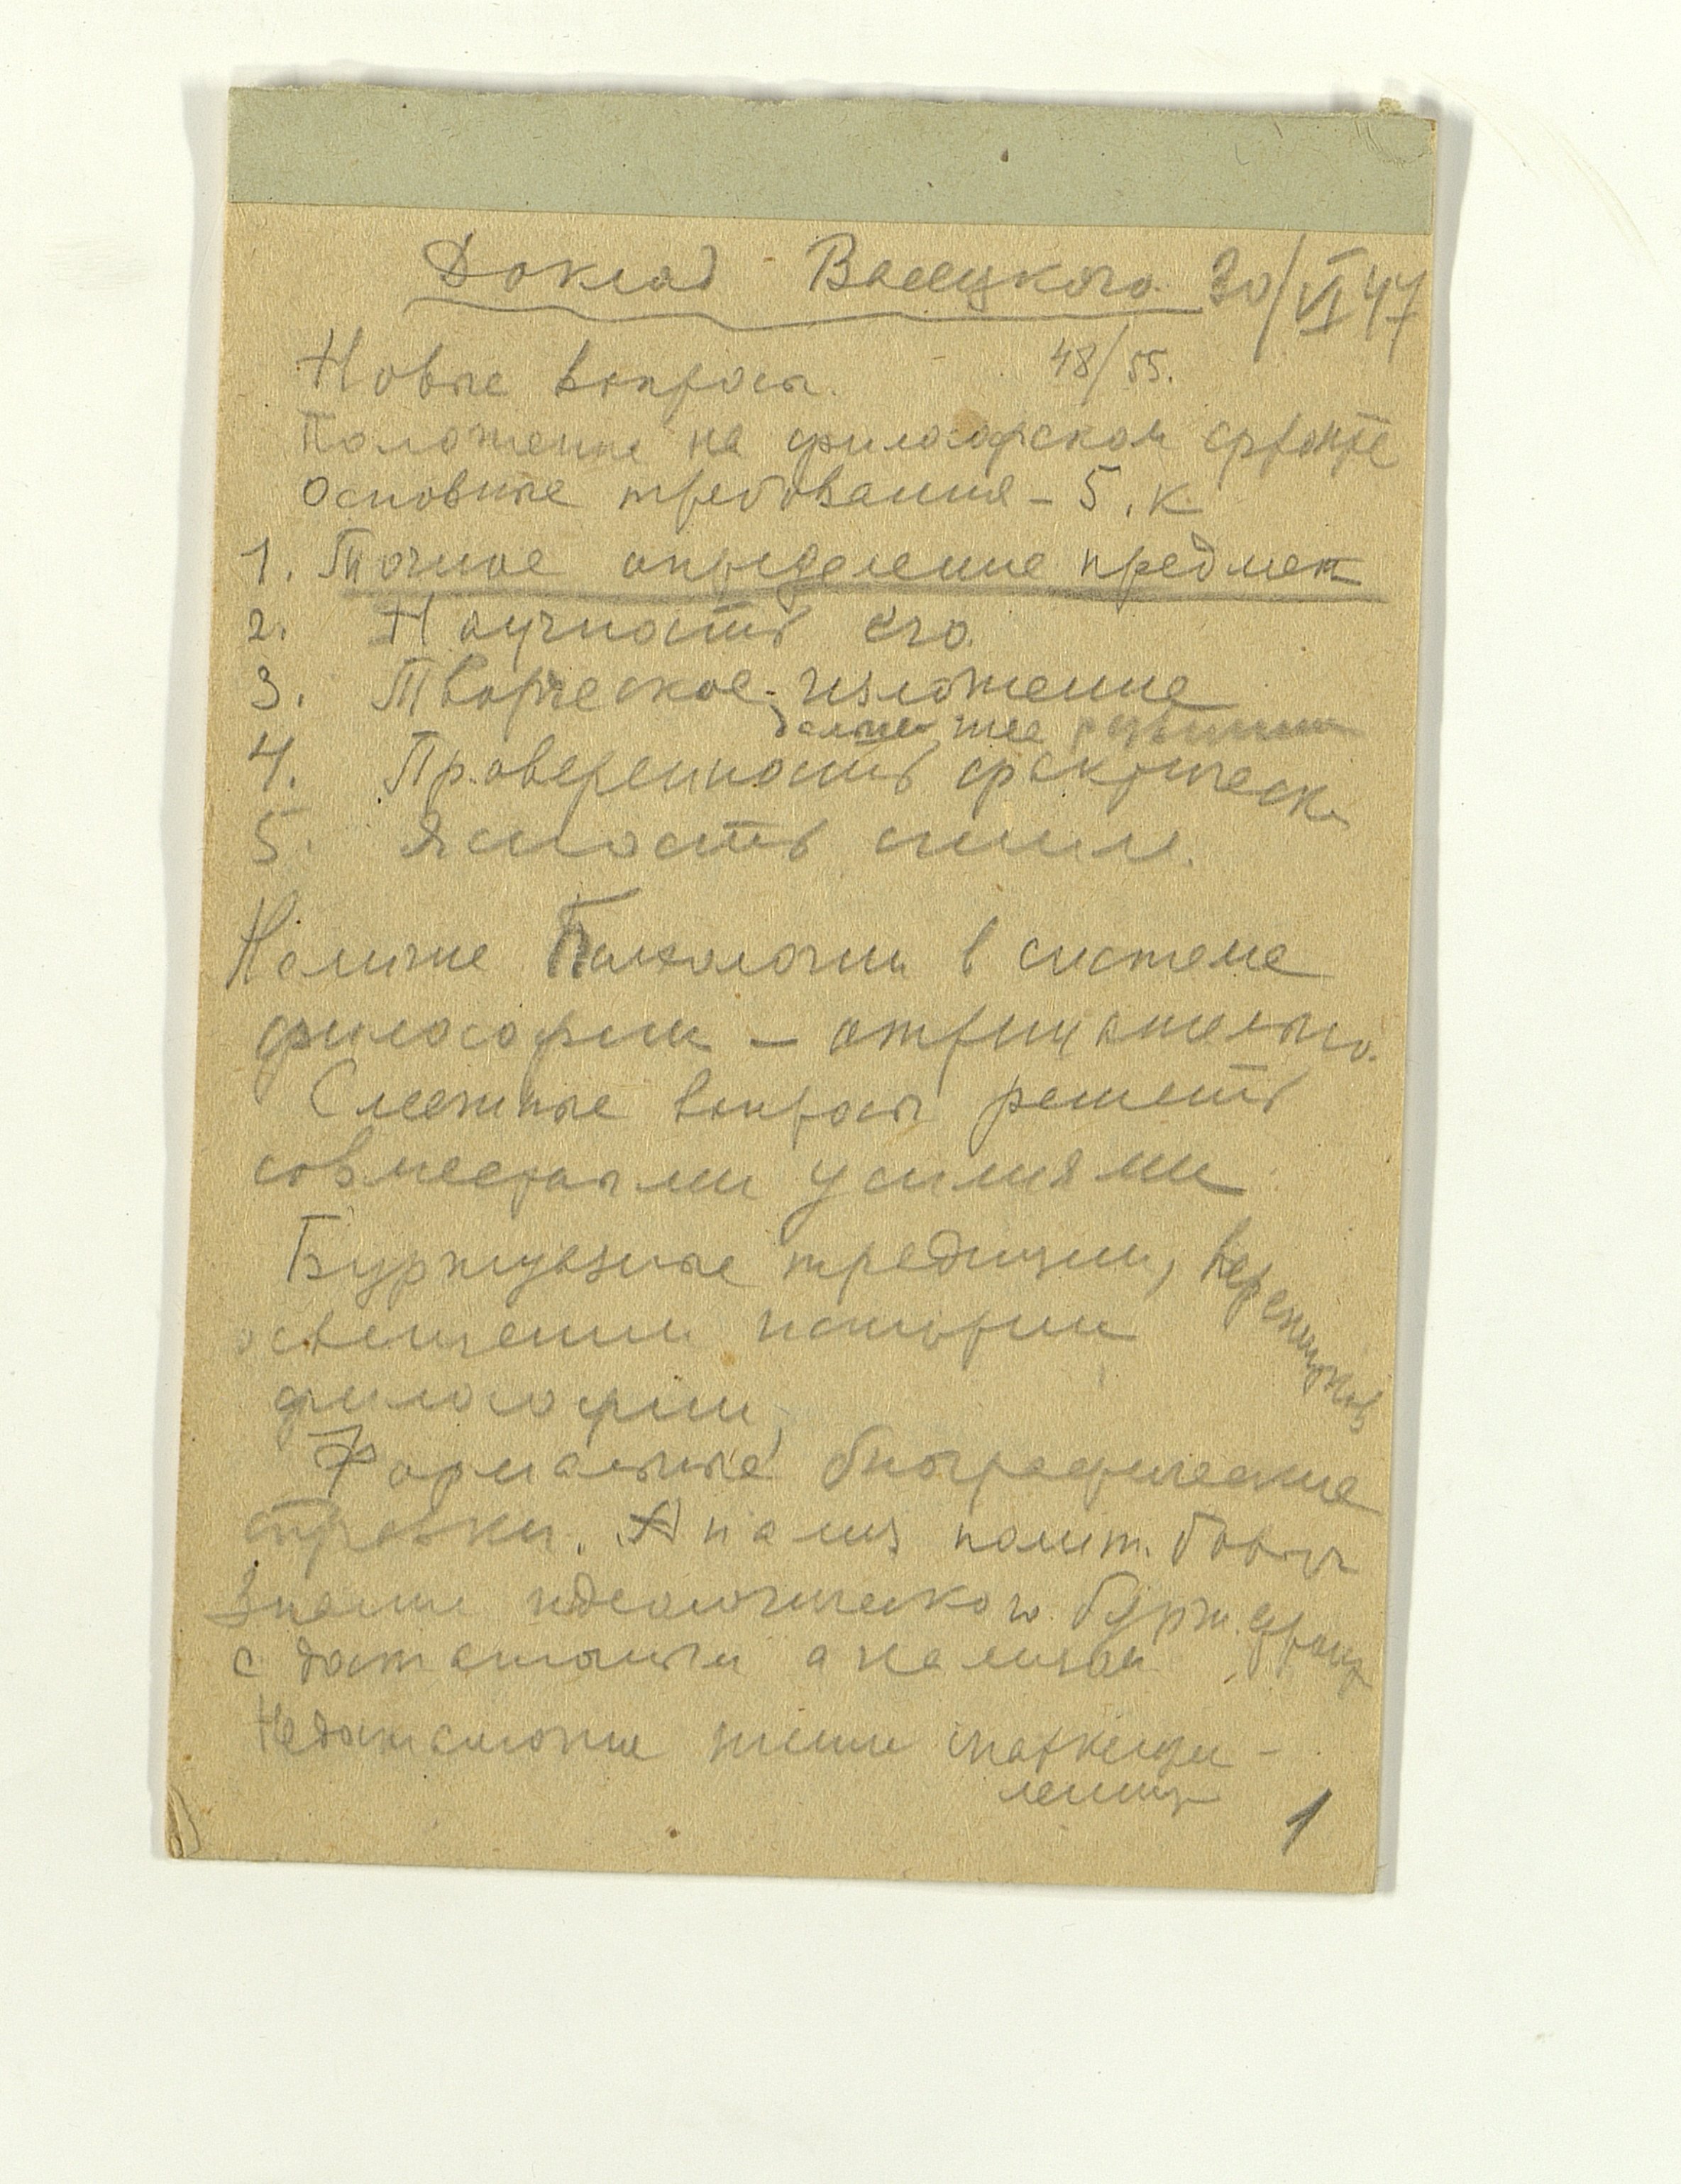 Доклад Васецкого 30/VI 47
48/55.
Новые вопросы.
Положение на философском фронте
Основные требования – 5. к
1. Точное определение предмет
2. Научность его.
3. Творческое изложение
дальнейшее развитие
4. Проверенность фактическ
5. Ясность стиля.
Наличие Психологии в системе
философии – отрицательно.
Смежные вопросы решать
совместными усилиями
Буржуазные традиции, в
освещении истории
философии,
Формальные биографические
справки. Анализ полит. борьбы
Знание идеологического бурж.
с достаточным анализом
Недостаточные
1